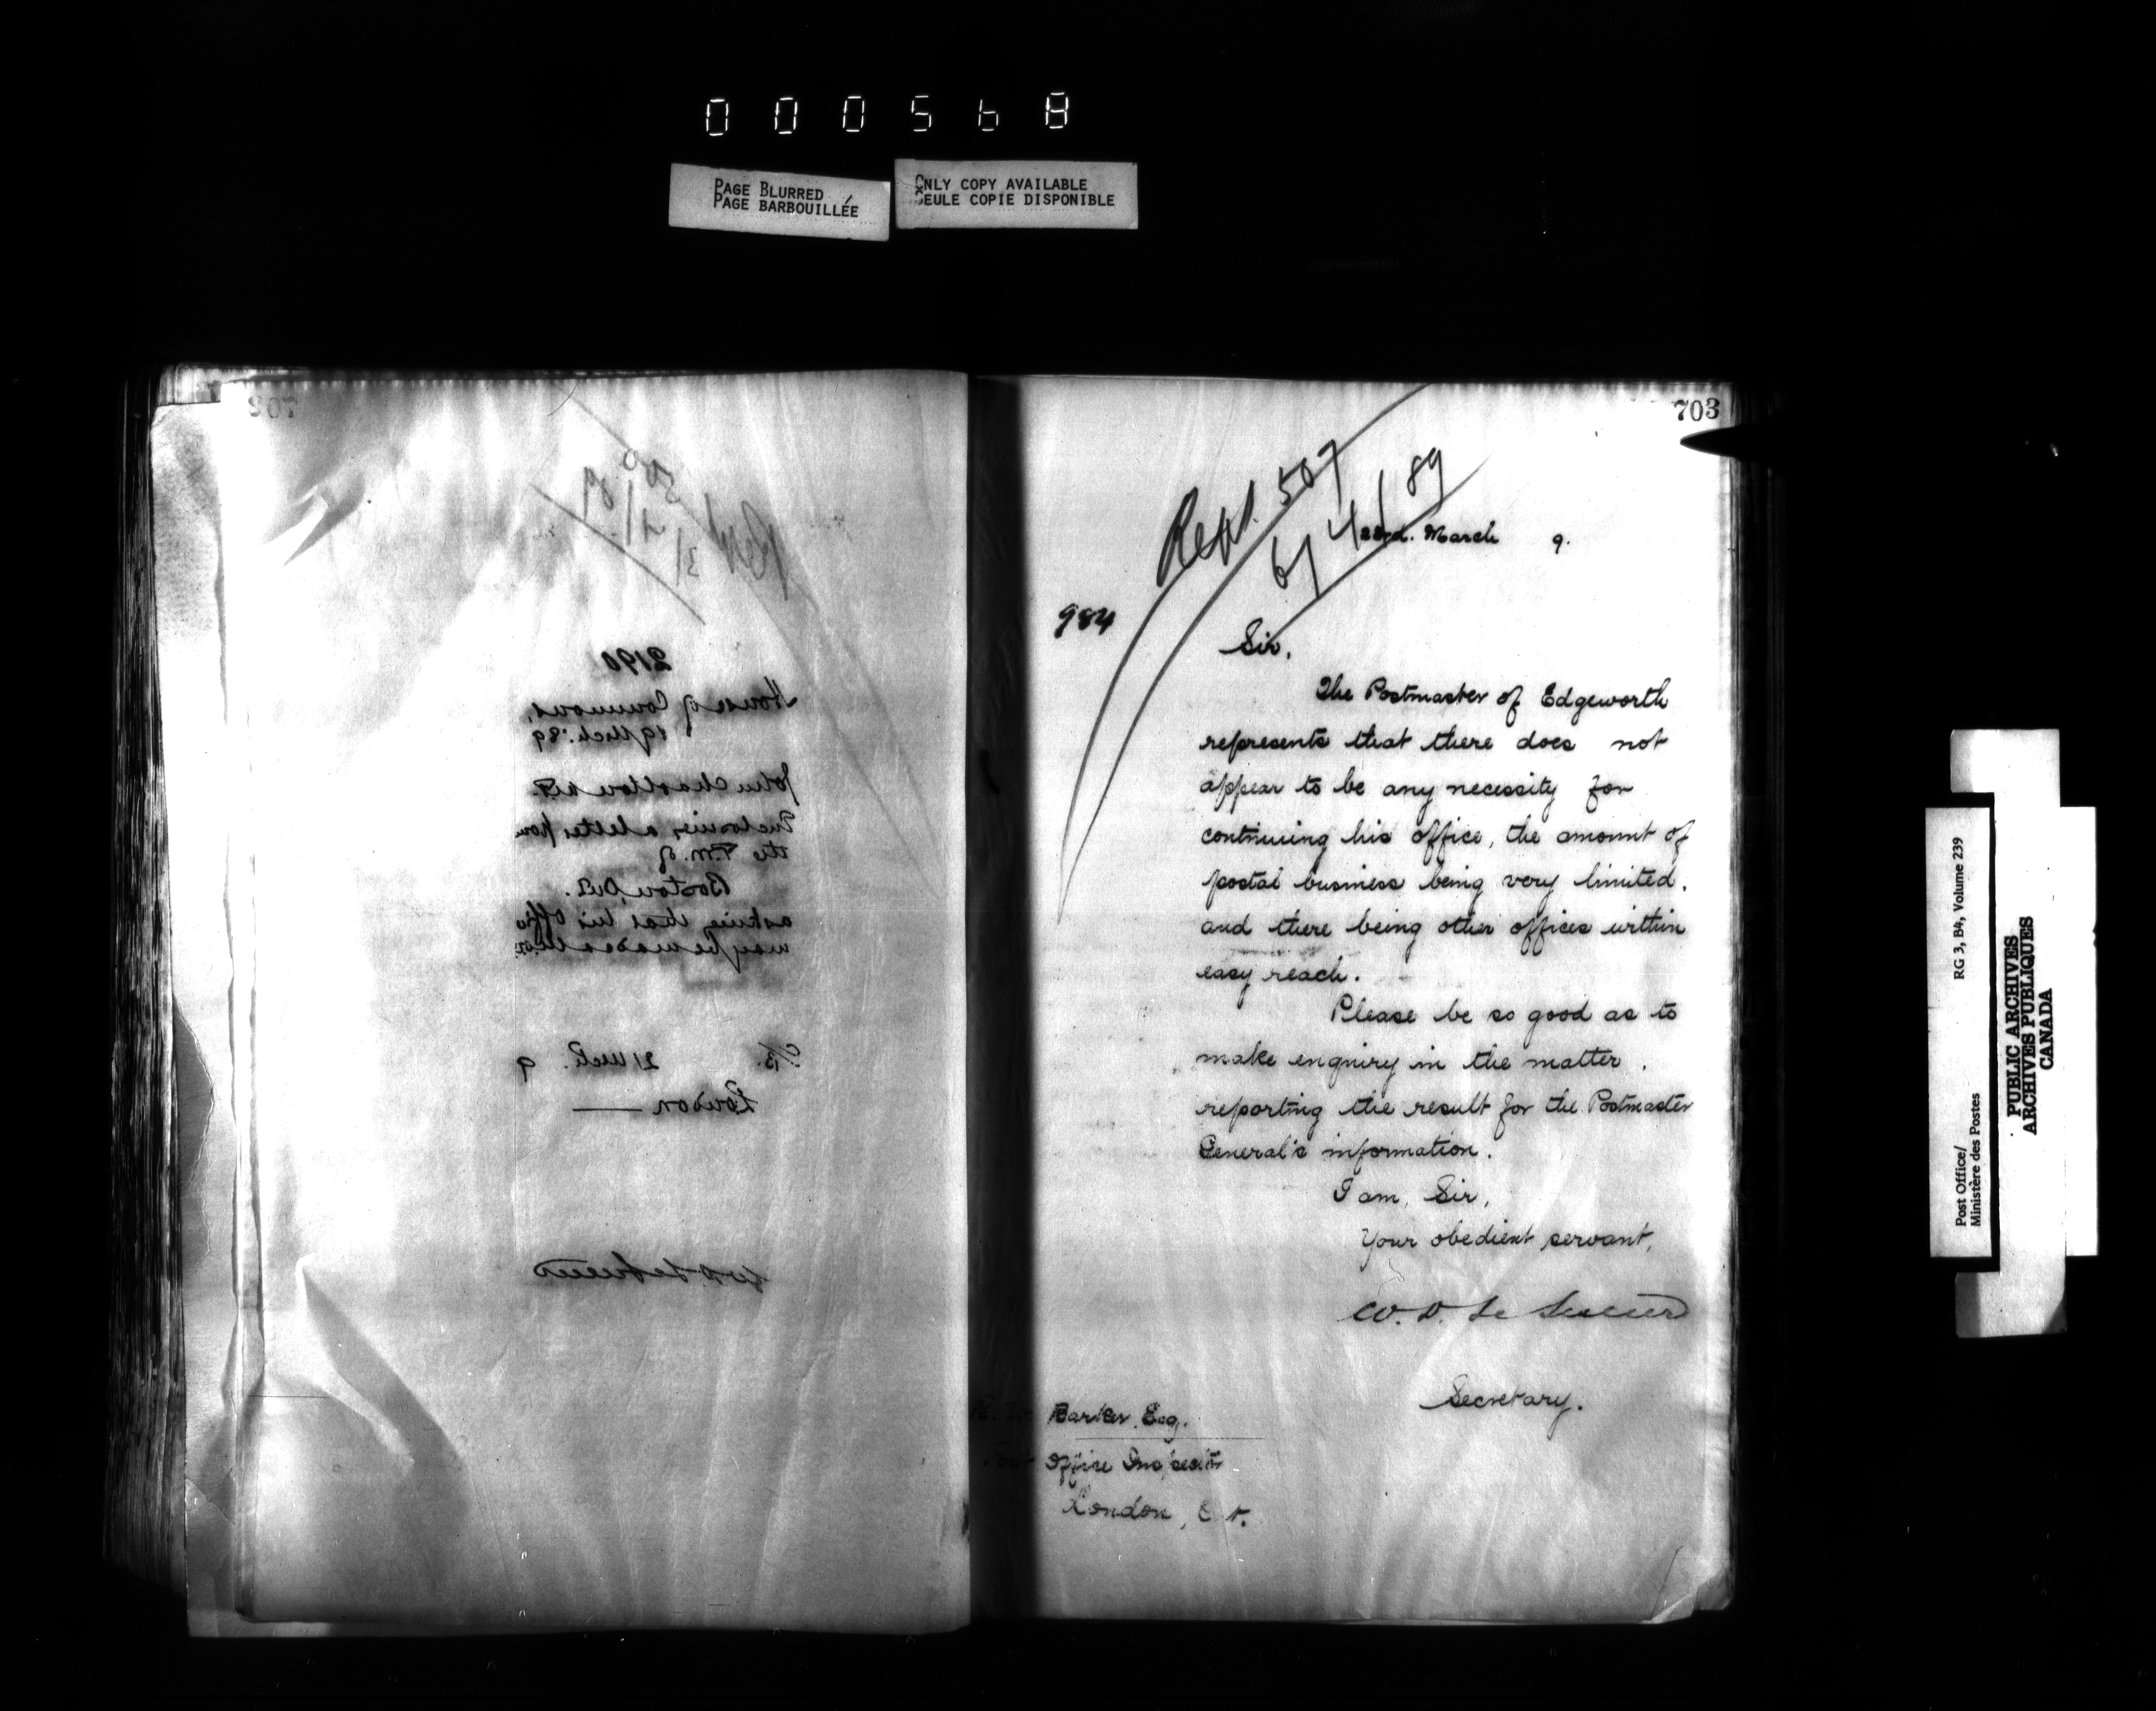 000568
PAGE BLURRED
PAGE BARBOUILLÉE
ONLY COPY AVAILABLE
SEULE COPIE DISPONIBLE
702
2190
House of Commons,
19 Mch: 89
John Charlton M.P.
Enclosing a letter from
the P.M. of
Boston, Ont.
asking that his office
may be made a M.O.O.
P/B. 21 Mch. 9
London
W D LeSueur
703
Rept. 507
6/4/89
22nd. March 9.
984
Sir,
The Postmaster of Edgeworth
represents that there does not
appear to be any necessity for
continuing his office, the amount of
postal business being very limited,
and there being other offices within
easy reach.
Please be so good as to
make enquiry in the matter,
reporting the result for the Postmaster
General's information.
I am, Sir,
Your obedient servant,
W. D. Le Sueur
Secretary.
Barker, Esq.
Post Office Inspector
London, O t.
Post Office/
Ministère des Postes
RG 3, B4, Volume 239
PUBLIC ARCHIVES
ARCHIVES PUBLIQUES
CANADA